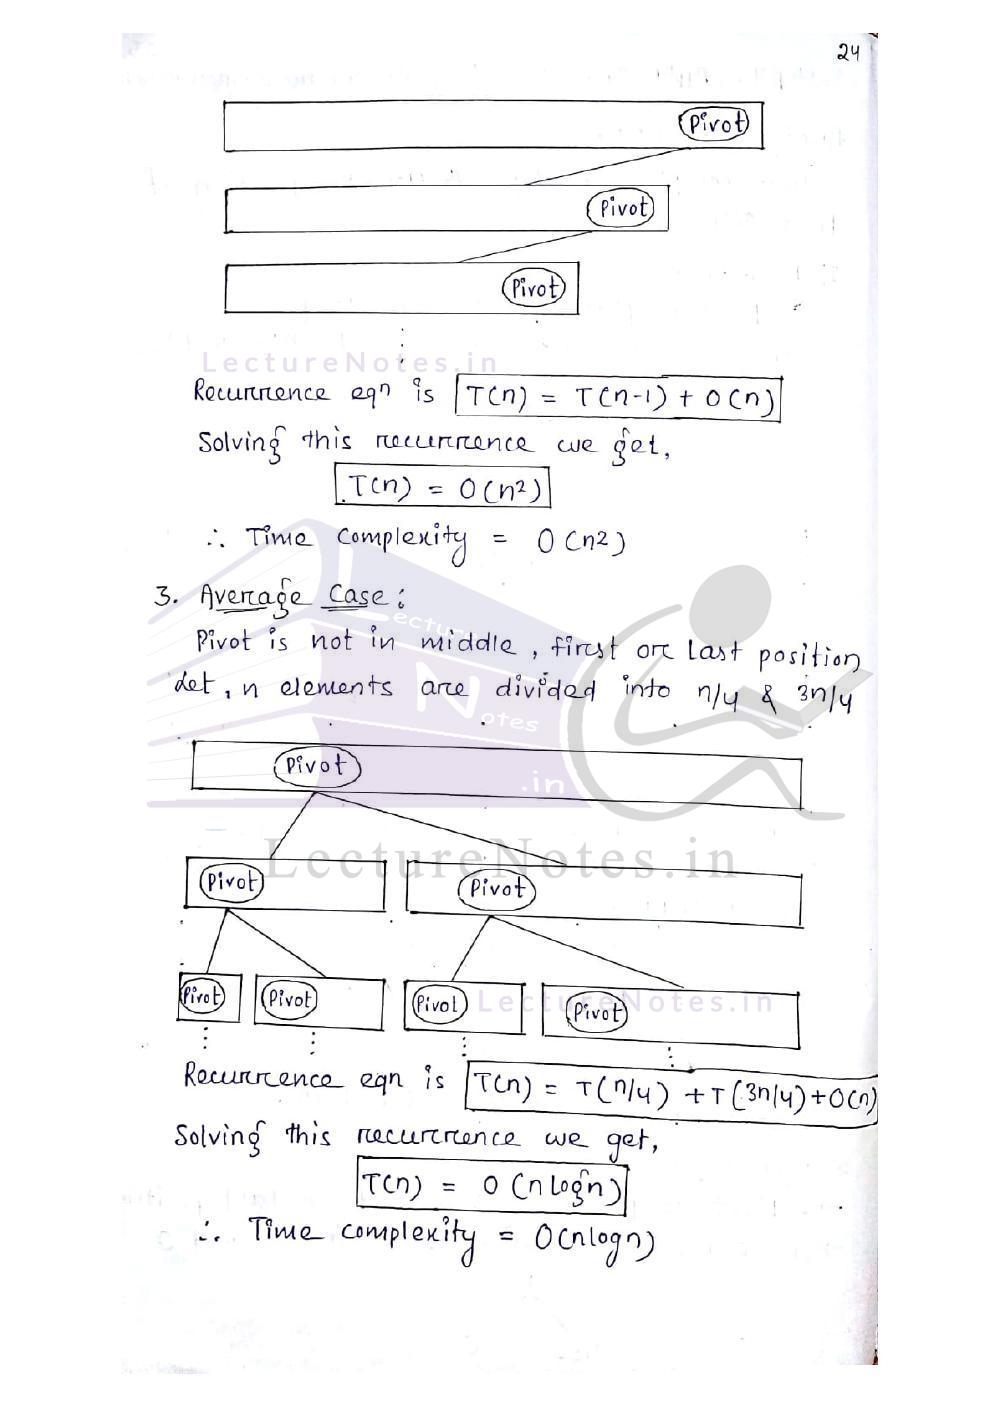 24
Pivot
Pivot
Pivot
LectureNotes.in
Recurrence eqn is T(n) = T(n-1) + O(n)
Solving this recurrence we get,
T(n) = O(n²)
∴ Time complexity = O(n2)
3. Average Case :
Pivot is not in middle, first or last position
Let, n elements are divided into n/4 & 3n/4
Lecture
Notes
.in
Pivot
LectureNotes.in
Pivot Pivot
Pivot Pivot Pivot Pivot
LectureNotes.in
Recurrence eqn is T(n) = T(n/4) + T(3n/4) + O(n)
Solving this recurrence we get,
T(n) = O(n log n)
∴ Time complexity = O(nlogn)